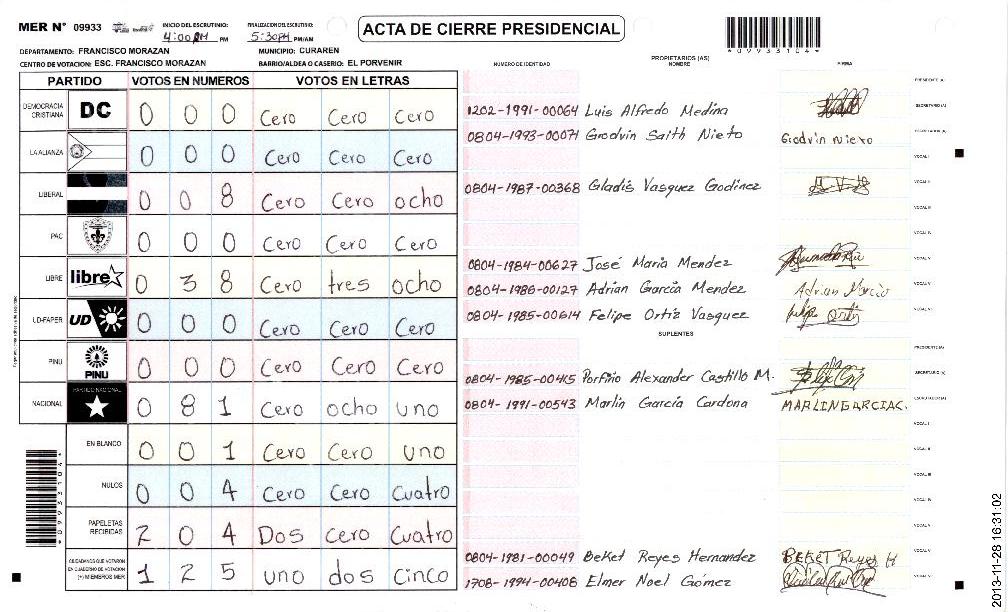 MER N° 09933
INICIO DEL ESCRUTINIO: 4:00 PM PM
FINALIZACION DEL ESCRUTINIO: 5:30PM PM/AM
ACTA DE CIERRE PRESIDENCIAL
*09933104*
DEPARTAMENTO: FRANCISCO MORAZAN
MUNICIPIO: CURAREN
CENTRO DE VOTACION: ESC. FRANCISCO MORAZAN
BARRIO/ALDEA O CASERIO: EL PORVENIR
NUMERO DE IDENTIDAD
PROPIETARIOS (AS)
NOMBRE
FIRMA
PARTIDO VOTOS EN NUMEROS VOTOS EN LETRAS
DEMOCRACIA CRISTIANA DC 0 0 0 Cero Cero Cero
LA ALIANZA 0 0 0 Cero Cero Cero
LIBERAL 0 0 8 Cero Cero ocho
PAC 0 0 0 Cero Cero Cero
LIBRE libre 0 3 8 Cero tres ocho
UD-FAPER UD 0 0 0 Cero Cero Cero
PINU PINU 0 0 0 Cero Cero Cero
NACIONAL PARTIDO NACIONAL 0 8 1 Cero ocho uno
EN BLANCO 0 0 1 Cero Cero uno
NULOS 0 0 4 Cero Cero Cuatro
PAPELETAS RECIBIDAS 2 0 4 Dos cero Cuatro
CIUDADANOS QUE VOTARON EN CUADERNO DE VOTACION (+) MIEMBROS MER 1 2 5 uno dos Cinco
PRESIDENTE (A)
1202-1991-00064 Luis Alfredo Medina SECRETARIO (A)
0804-1993-00071 Grodvin Saith Nieto Grodvin Nieto ESCRUTADOR (A)
VOCAL I
0804-1987-00368 Gladis Vasquez Godinez VOCAL II
VOCAL III
VOCAL IV
0804-1984-00627 José Maria Mendez VOCAL V
0804-1986-00127 Adrian García Mendez Adrian Garcia VOCAL V
0804-1985-00614 Felipe Ortiz Vasquez felipe Ortiz VOCAL VI
SUPLENTES
PRESIDENTE (A)
0804-1985-00415 Porfirio Alexander Castillo M. SECRETARIO (A)
0804-1991-00543 Marlin García Cardona MARLINGARCIAC. ESCRUTADOR (A)
VOCAL I
VOCAL II
VOCAL III
VOCAL IV
VOCAL V
0804-1981-00049 BeKet Reyes Hernandez BEKET Reyes H VOCAL V
1708-1994-00408 Elmer Noel Gómez VOCAL VI
*09933104*
2013-11-28 16:31:02